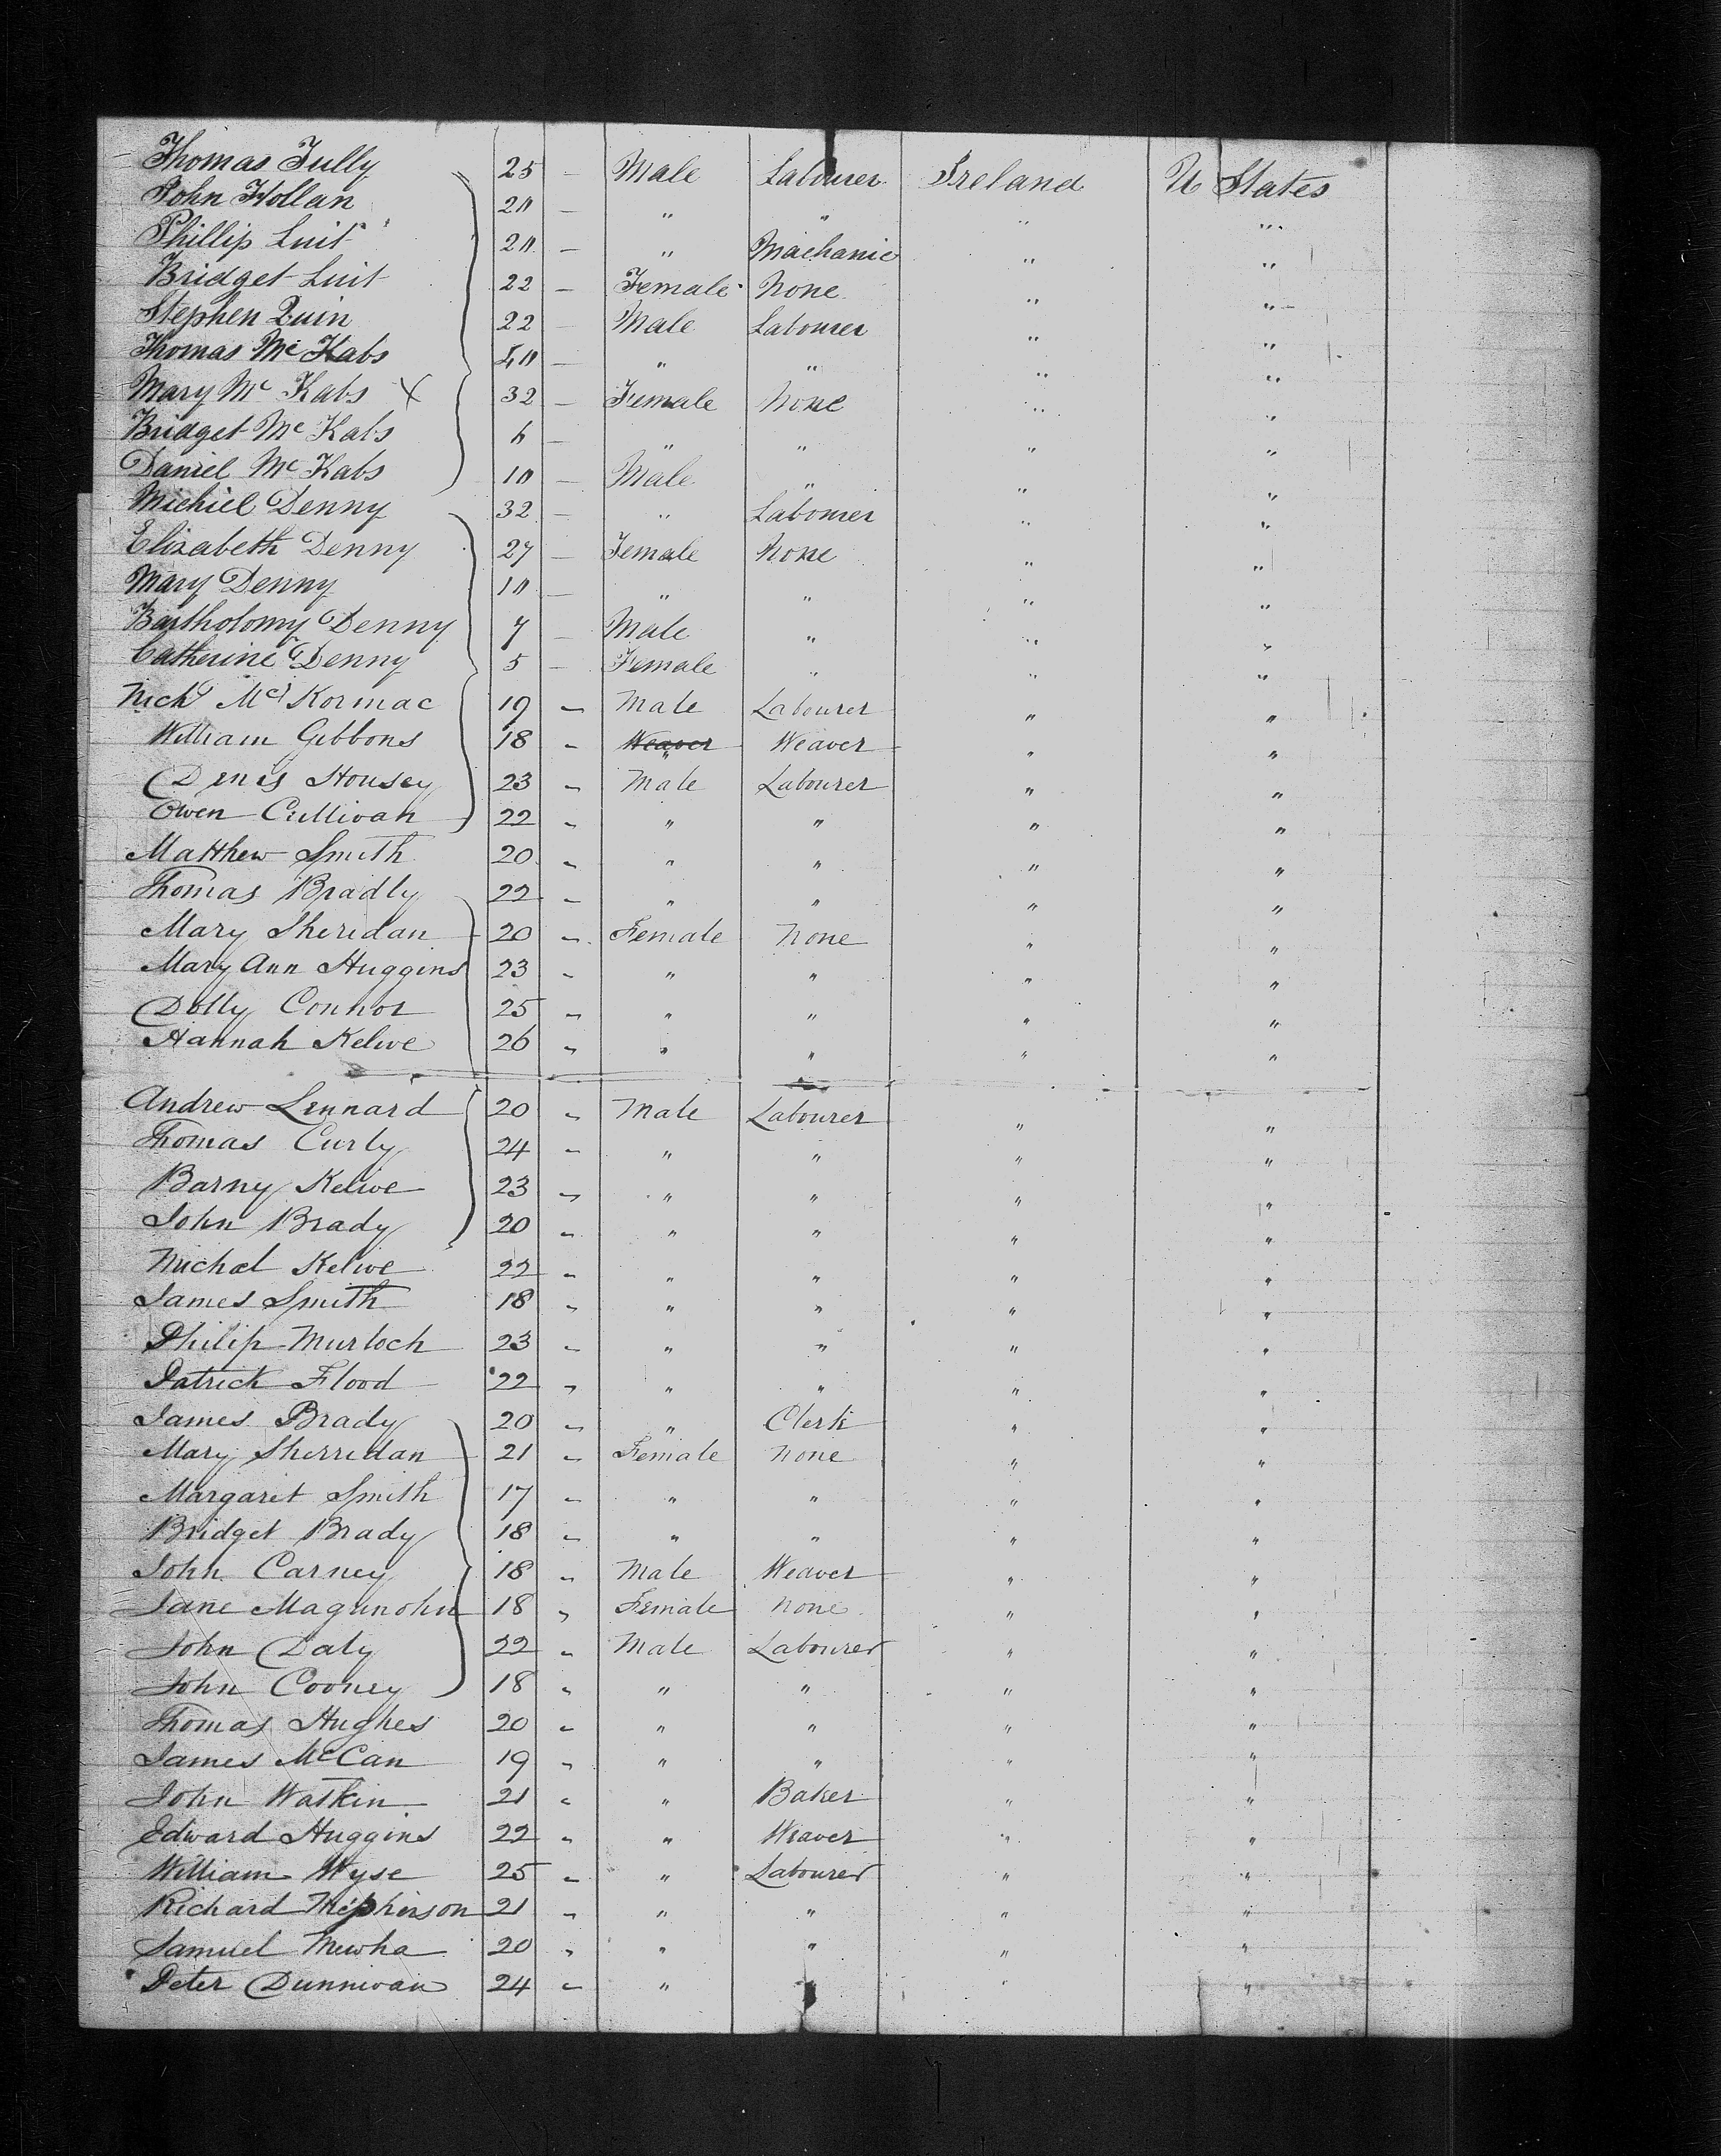 Thomas Tully 25 — Male Labourer Ireland U States
John Hollan 20 — " " " "
Phillip Luit 20 — " Machanic " "
Bridget Luit 22 — Female None " "
Stephen Quin 22 — Male Labourer " "
Thomas Mc Kabs 40 — " " " "
Mary Mc Kabs X 32 — Female None " "
Bridget Mc Kabs 6 — " " " "
Daniel Mc Kabs 10 — Male " " "
Michiel Denny 32 — " Labourer " "
Elizabeth Denny 27 — Female None " "
Mary Denny 10 — " " " "
Bartholomy Denny 7 — Male " " "
Catherine Denny 5 — Female " " "
Mc Kormac 19 — Male Labourer " "
William Gibbons 18 " Weaver " Weaver " "
Denis Housey 23 " Male Labourer " "
Owen Cullivan 22 " " " " "
Matthew Smith 20 " " " " "
Thomas Bradly 22 " " " " "
Mary Sheridan 20 " Female None " "
Mary Ann Huggins 23 " " " " "
Dolly Connor 25 " " " " "
Hannah Kelwe 26 " " " " "
Andrew Lennard 20 " Male Labourer " "
Thomas Curly 24 " " " " "
Barny Kelwe 23 " " " " "
John Brady 20 " " " " "
Michael Kelwe 22 " " " " "
James Smith 18 " " " " "
Philip Murtoch 23 " " " " "
Patrick Flood 22 " " " " "
James Brady 20 " " Clerk " "
Mary Sherridan 21 " Female None " "
Margaret Smith 17 " " " " "
Bridget Brady 18 " " " " "
John Carney 18 " Male Weaver " "
Jane Magunohin 18 " Female None " "
John Daly 22 " Male Labourer " "
John Cooney 18 " " " " "
Thomas Hughes 20 " " " " "
James McCan 19 " " " " "
John Watkin 21 " " Baker " "
Edward Huggins 22 " " Weaver " "
William Wyse 25 " " Labourer " "
Richard Mcpherson 21 " " " " "
Samuel Mewha 20 " " " " "
Peter Dunnivan 24 " " " " "